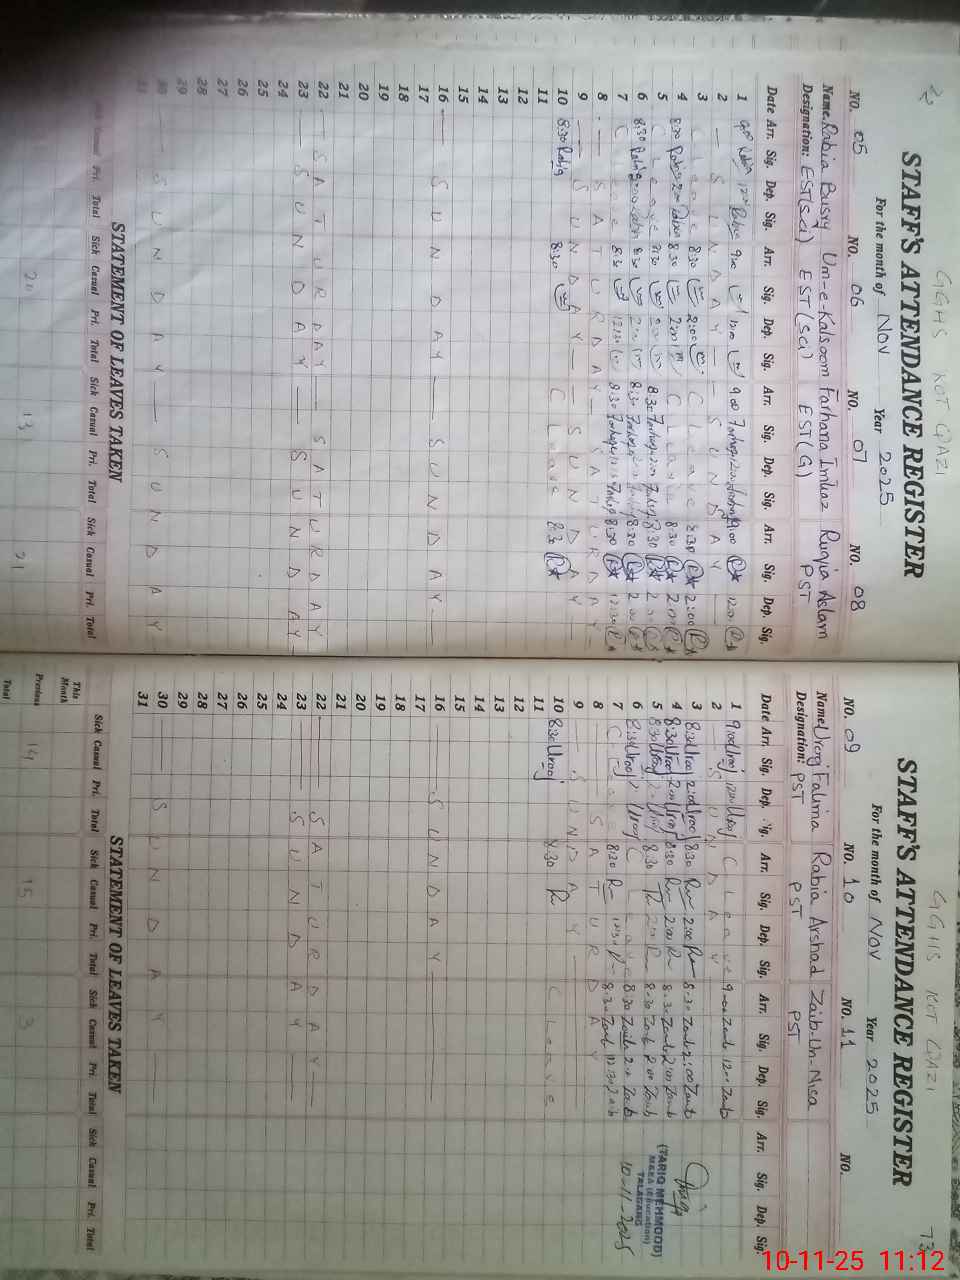 GGHS KOT GAZI
STAFF'S ATTENDANCE REGISTER
For the month of Nov Year 2025
NO. 05 NO. 06 NO. 07 NO. 08
Name. Rabia Busry Um-e-Kalsoom Farhana Imtiaz Ruqia Aslam
Designation: EST(Sci) EST(Sci) EST(G) PST
Date Arr. Sig. Dep. Sig. Arr. Sig. Dep. Sig. Arr. Sig. Dep. Sig. Arr. Sig. Dep. Sig.
1 9:00 Rabia 12:00 Rabia 9:00 12:00 9:00 Farhana 12:00 Farhana 9:00 12:00
2 SUNDAY SUNDAY
3 C Leave 8:30 2:00 C Leave 8:30 2:00
4 8:30 Rabia 2:00 Rabia 8:30 2:00 C Leave 8:30 2:00
5 C Leave 8:30 2:00 8:30 Farhana 2:00 Farhana 8:30 2:00
6 8:30 Rabia 2:00 Rabia 8:30 2:00 8:30 Farhana 2:00 Farhana 8:30 2:00
7 C Leave 8:30 12:30 8:30 Farhana 12:30 Farhana 8:30 12:30
8 SATURDAY SATURDAY
9 SUNDAY SUNDAY
10 8:30 Rabia 8:30 C Leave 8:30
11
12
13
14
15
16 SUNDAY SUNDAY
17
18
19
20
21
22 SATURDAY SATURDAY
23 SUNDAY SUNDAY
24
25
26
27
28
29
30 SUNDAY SUNDAY
31
STATEMENT OF LEAVES TAKEN
Sick Casual Pri. Total Sick Casual Pri. Total Sick Casual Pri. Total Sick Casual Pri. Total
20 13 21
73
GGHS KOT GAZI
STAFF'S ATTENDANCE REGISTER
For the month of Nov Year 2025
NO. 09 NO. 10 NO. 11 NO.
Name. Urooj Fatima Rabia Arshad Zaib-Un-Nisa
Designation: PST PST PST
Date Arr. Sig. Dep. Sig. Arr. Sig. Dep. Sig. Arr. Sig. Dep. Sig. Arr. Sig. Dep. Sig.
1 9:00 Urooj 12:00 Urooj C Leave 9:00 Zaib 12:00 Zaib
2 SUNDAY
3 8:30 Urooj 2:00 Urooj 8:30 2:00 8:30 Zaib 2:00 Zaib
4 8:30 Urooj 2:00 Urooj 8:30 2:00 8:30 Zaib 2:00 Zaib
5 8:30 Urooj 2:00 Urooj 8:30 2:00 8:30 Zaib 2:00 Zaib
6 8:30 Urooj 2:00 Urooj C Leave 8:30 Zaib 2:00 Zaib
7 C Leave 8:30 12:30 8:30 Zaib 12:30 Zaib
8 SATURDAY
9 SUNDAY
10 8:30 Urooj 8:30 C Leave
11
12
13
14
15
16 SUNDAY
17
18
19
20
21
22 SATURDAY
23 SUNDAY
24
25
26
27
28
29
30 SUNDAY
31
(TARIQ MEHMOOD)
M&EA (Education)
TALAGANG
10-11-2025
STATEMENT OF LEAVES TAKEN
Sick Casual Pri. Total Sick Casual Pri. Total Sick Casual Pri. Total Sick Casual Pri. Total
This Month
Previous 14 15 3
Total
10-11-25 11:12